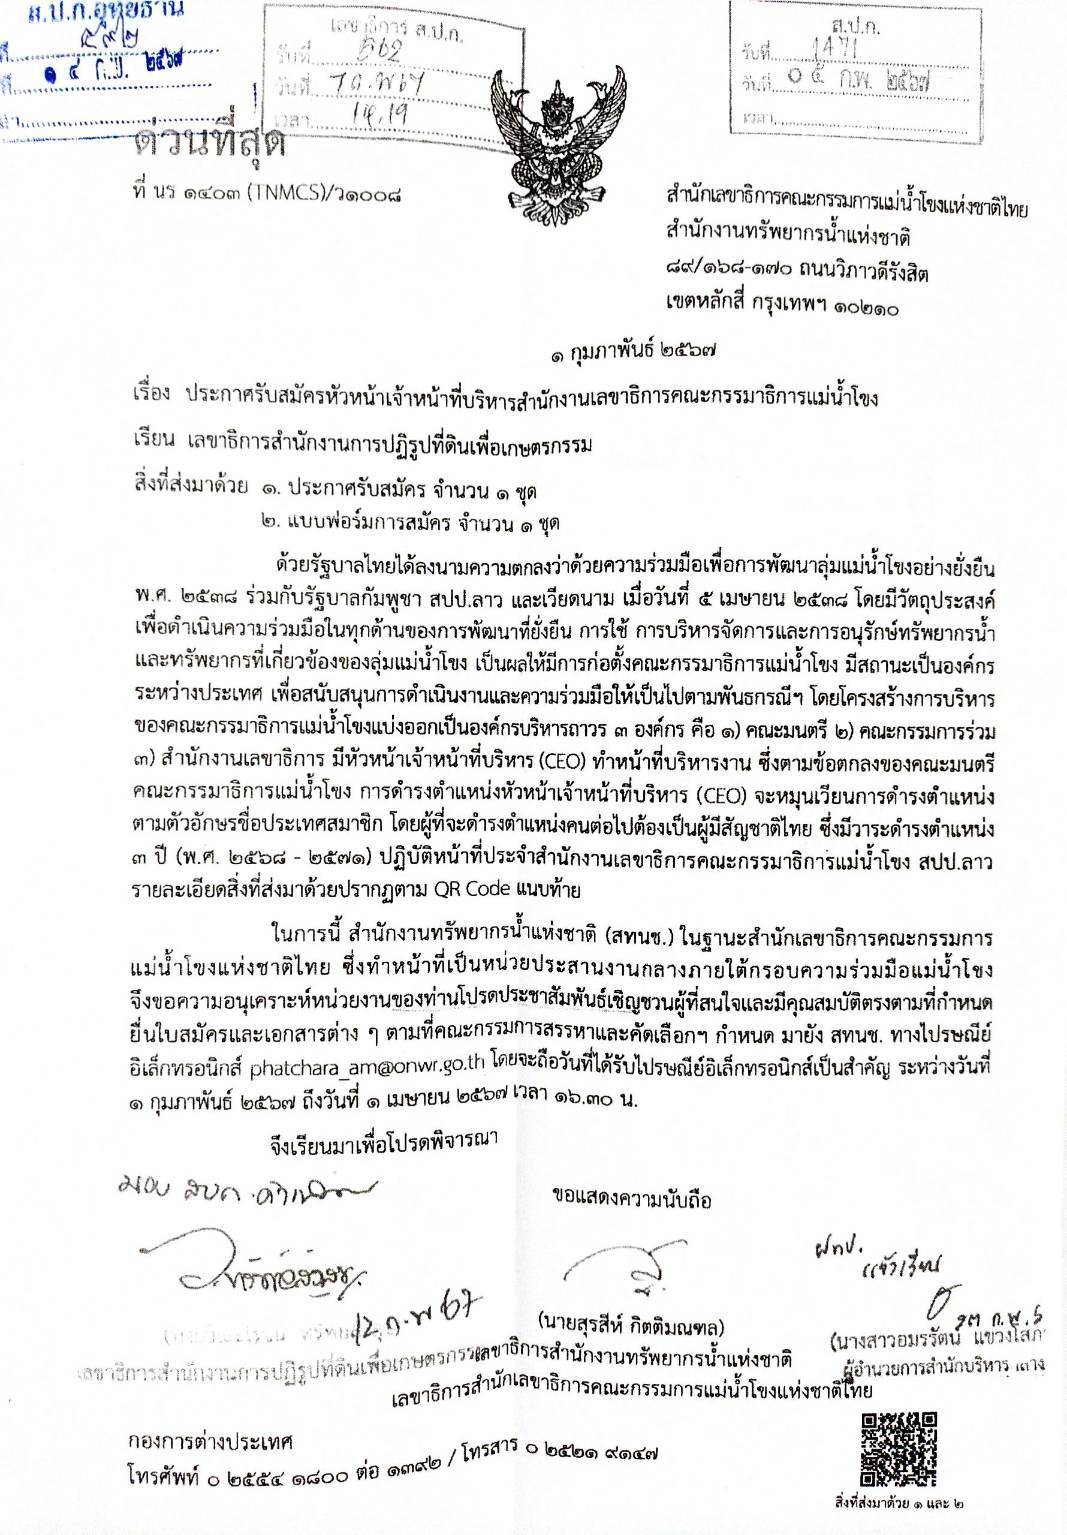 ส.ป.ก.อุทัยธานี
๕๙๒
๑๔ ก.พ. ๒๕๖๗
เลขาธิการ ส.ป.ก.
รับที่ 562
วันที่
เวลา 14.19
ส.ป.ก.
รับที่ 1471
วันที่ ๐๕ ก.พ. ๒๕๖๗
เวลา
ด่วนที่สุด
ที่ นร ๑๔๐๓ (TNMCS)/ว๑๐๐๘
สำนักเลขาธิการคณะกรรมการแม่น้ำโขงแห่งชาติไทย
สำนักงานทรัพยากรน้ำแห่งชาติ
๘๙/๑๖๘-๑๗๐ ถนนวิภาวดีรังสิต
เขตหลักสี่ กรุงเทพฯ ๑๐๒๑๐
๑ กุมภาพันธ์ ๒๕๖๗
เรื่อง ประกาศรับสมัครหัวหน้าเจ้าหน้าที่บริหารสำนักงานเลขาธิการคณะกรรมาธิการแม่น้ำโขง
เรียน เลขาธิการสำนักงานการปฏิรูปที่ดินเพื่อเกษตรกรรม
สิ่งที่ส่งมาด้วย ๑. ประกาศรับสมัคร จำนวน ๑ ชุด
๒. แบบฟอร์มการสมัคร จำนวน ๑ ชุด
ด้วยรัฐบาลไทยได้ลงนามความตกลงว่าด้วยความร่วมมือเพื่อการพัฒนาลุ่มแม่น้ำโขงอย่างยั่งยืน
พ.ศ. ๒๕๓๘ ร่วมกับรัฐบาลกัมพูชา สปป.ลาว และเวียดนาม เมื่อวันที่ ๕ เมษายน ๒๕๓๘ โดยมีวัตถุประสงค์
เพื่อดำเนินความร่วมมือในทุกด้านของการพัฒนาที่ยั่งยืน การใช้ การบริหารจัดการและการอนุรักษ์ทรัพยากรน้ำ
และทรัพยากรที่เกี่ยวข้องของลุ่มแม่น้ำโขง เป็นผลให้มีการก่อตั้งคณะกรรมาธิการแม่น้ำโขง มีสถานะเป็นองค์กร
ระหว่างประเทศ เพื่อสนับสนุนการดำเนินงานและความร่วมมือให้เป็นไปตามพันธกรณีฯ โดยโครงสร้างการบริหาร
ของคณะกรรมาธิการแม่น้ำโขงแบ่งออกเป็นองค์กรบริหารถาวร ๓ องค์กร คือ ๑) คณะมนตรี ๒) คณะกรรมการร่วม
๓) สำนักงานเลขาธิการ มีหัวหน้าเจ้าหน้าที่บริหาร (CEO) ทำหน้าที่บริหารงาน ซึ่งตามข้อตกลงของคณะมนตรี
คณะกรรมาธิการแม่น้ำโขง การดำรงตำแหน่งหัวหน้าเจ้าหน้าที่บริหาร (CEO) จะหมุนเวียนการดำรงตำแหน่ง
ตามตัวอักษรชื่อประเทศสมาชิก โดยผู้ที่จะดำรงตำแหน่งคนต่อไปต้องเป็นผู้มีสัญชาติไทย ซึ่งมีวาระดำรงตำแหน่ง
๓ ปี (พ.ศ. ๒๕๖๘ - ๒๕๗๑) ปฏิบัติหน้าที่ประจำสำนักงานเลขาธิการคณะกรรมาธิการแม่น้ำโขง สปป.ลาว
รายละเอียดสิ่งที่ส่งมาด้วยปรากฏตาม QR Code แนบท้าย
ในการนี้ สำนักงานทรัพยากรน้ำแห่งชาติ (สทนช.) ในฐานะสำนักเลขาธิการคณะกรรมการ
แม่น้ำโขงแห่งชาติไทย ซึ่งทำหน้าที่เป็นหน่วยประสานงานกลางภายใต้กรอบความร่วมมือแม่น้ำโขง
จึงขอความอนุเคราะห์หน่วยงานของท่านโปรดประชาสัมพันธ์เชิญชวนผู้ที่สนใจและมีคุณสมบัติตรงตามที่กำหนด
ยื่นใบสมัครและเอกสารต่าง ๆ ตามที่คณะกรรมการสรรหาและคัดเลือกฯ กำหนด มายัง สทนช. ทางไปรษณีย์
อิเล็กทรอนิกส์ phatchara_am@onwr.go.th โดยจะถือวันที่ได้รับไปรษณีย์อิเล็กทรอนิกส์เป็นสำคัญ ระหว่างวันที่
๑ กุมภาพันธ์ ๒๕๖๗ ถึงวันที่ ๑ เมษายน ๒๕๖๗ เวลา ๑๖.๓๐ น.
จึงเรียนมาเพื่อโปรดพิจารณา
มอบ สบก.
ขอแสดงความนับถือ
ฝทป.
แจ้งเวียน
12 ก.พ 67
(นายสุรสีห์ กิตติมณฑล)
(นางสาวอมรรัตน์ แขวงโสภา
เลขาธิการสำนักงานการปฏิรูปที่ดินเพื่อเกษตรกรรม
เลขาธิการสำนักงานทรัพยากรน้ำแห่งชาติ
ผู้อำนวยการสำนักบริหารกลาง
เลขาธิการสำนักเลขาธิการคณะกรรมการแม่น้ำโขงแห่งชาติไทย
กองการต่างประเทศ
โทรศัพท์ ๐ ๒๕๕๔ ๑๘๐๐ ต่อ ๑๓๙๒ / โทรสาร ๐ ๒๕๒๑ ๙๑๔๗
สิ่งที่ส่งมาด้วย ๑ และ ๒